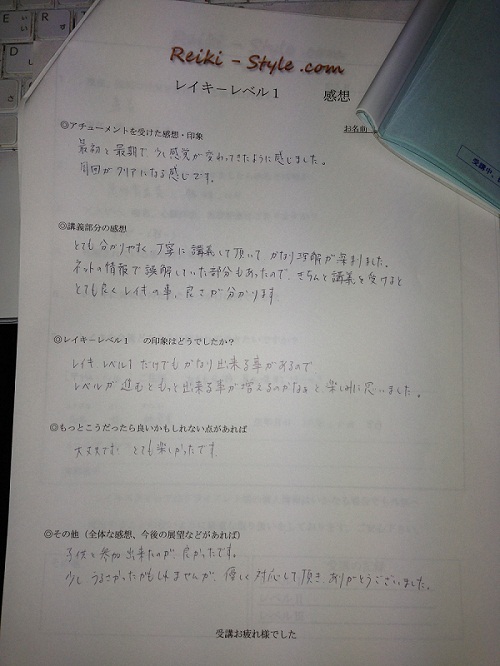 Reiki - Style .com
レイキーレベル１　感想
お名前
◎アチューメントを受けた感想・印象
最初と最期で 少し感覚が変わってきたように感じました。
周囲がクリアになる感じです。
◎講義部分の感想
とても分かりやすく 丁寧に講義して頂いて かなり理解が深まりました。
ネットの情報で誤解していた部分もあったので、きちんと講義を受けると
とても良くレイキの事、良さが分かります
◎レイキーレベル１　の印象はどうでしたか？
レイキ レベル1だけでもかなり出来る事があるので
レベルが進むともっと出来る事が増えるのかなぁと、楽しみに思いました。
◎もっとこうだったら良いかもしれない点があれば
大丈夫です とても楽しかったです。
◎その他（全体な感想、今後の展望などがあれば）
子供と参加出来たのが良かったです。
少しうるさかったかもしれませんが、優しく対応して頂き、ありがとうございました。
受講お疲れ様でした